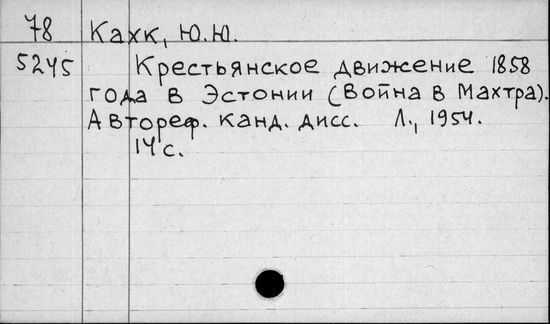 78 Кахк, Ю.Ю.
5245 Крестьянское движение 1858
года в Эстонии (Война в Махтра).
Автореф. канд. дисс. Л., 1954.
14 с.